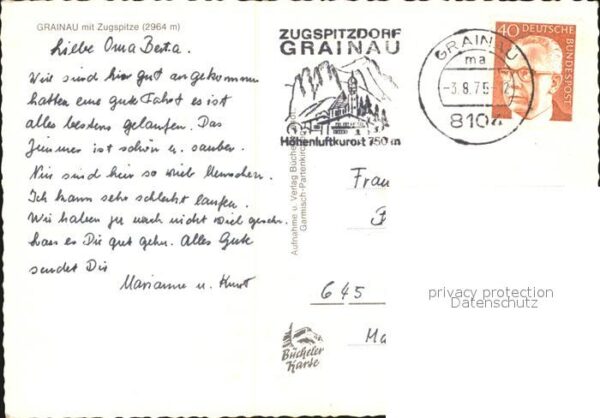 GRAINAU mit Zugspitze (2964 m)
Liebe Oma Berta.
Wir sind hier gut angekommen
hatten eine gute Fahrt es ist
alles bestens gelaufen. Das
Zimmer ist schön u. sauber.
Nur sind hier so viel Menschen.
Ich kann sehr schlecht laufen.
Wir haben ja noch nicht viel geseh.
hoffe es Dir gut geht. Alles Gute
sendet Dir
Marianne u. Kurt
ZUGSPITZDORF
GRAINAU
Höhenluftkurort 750 m
GRAINAU
ma
-3.8.75-12
8104
40
DEUTSCHE
BUNDESPOST
Aufnahme u. Verlag Büchele
Garmisch-Partenkirchen
Frau
645
Ma
Bücheler
Karte
privacy protection
Datenschutz